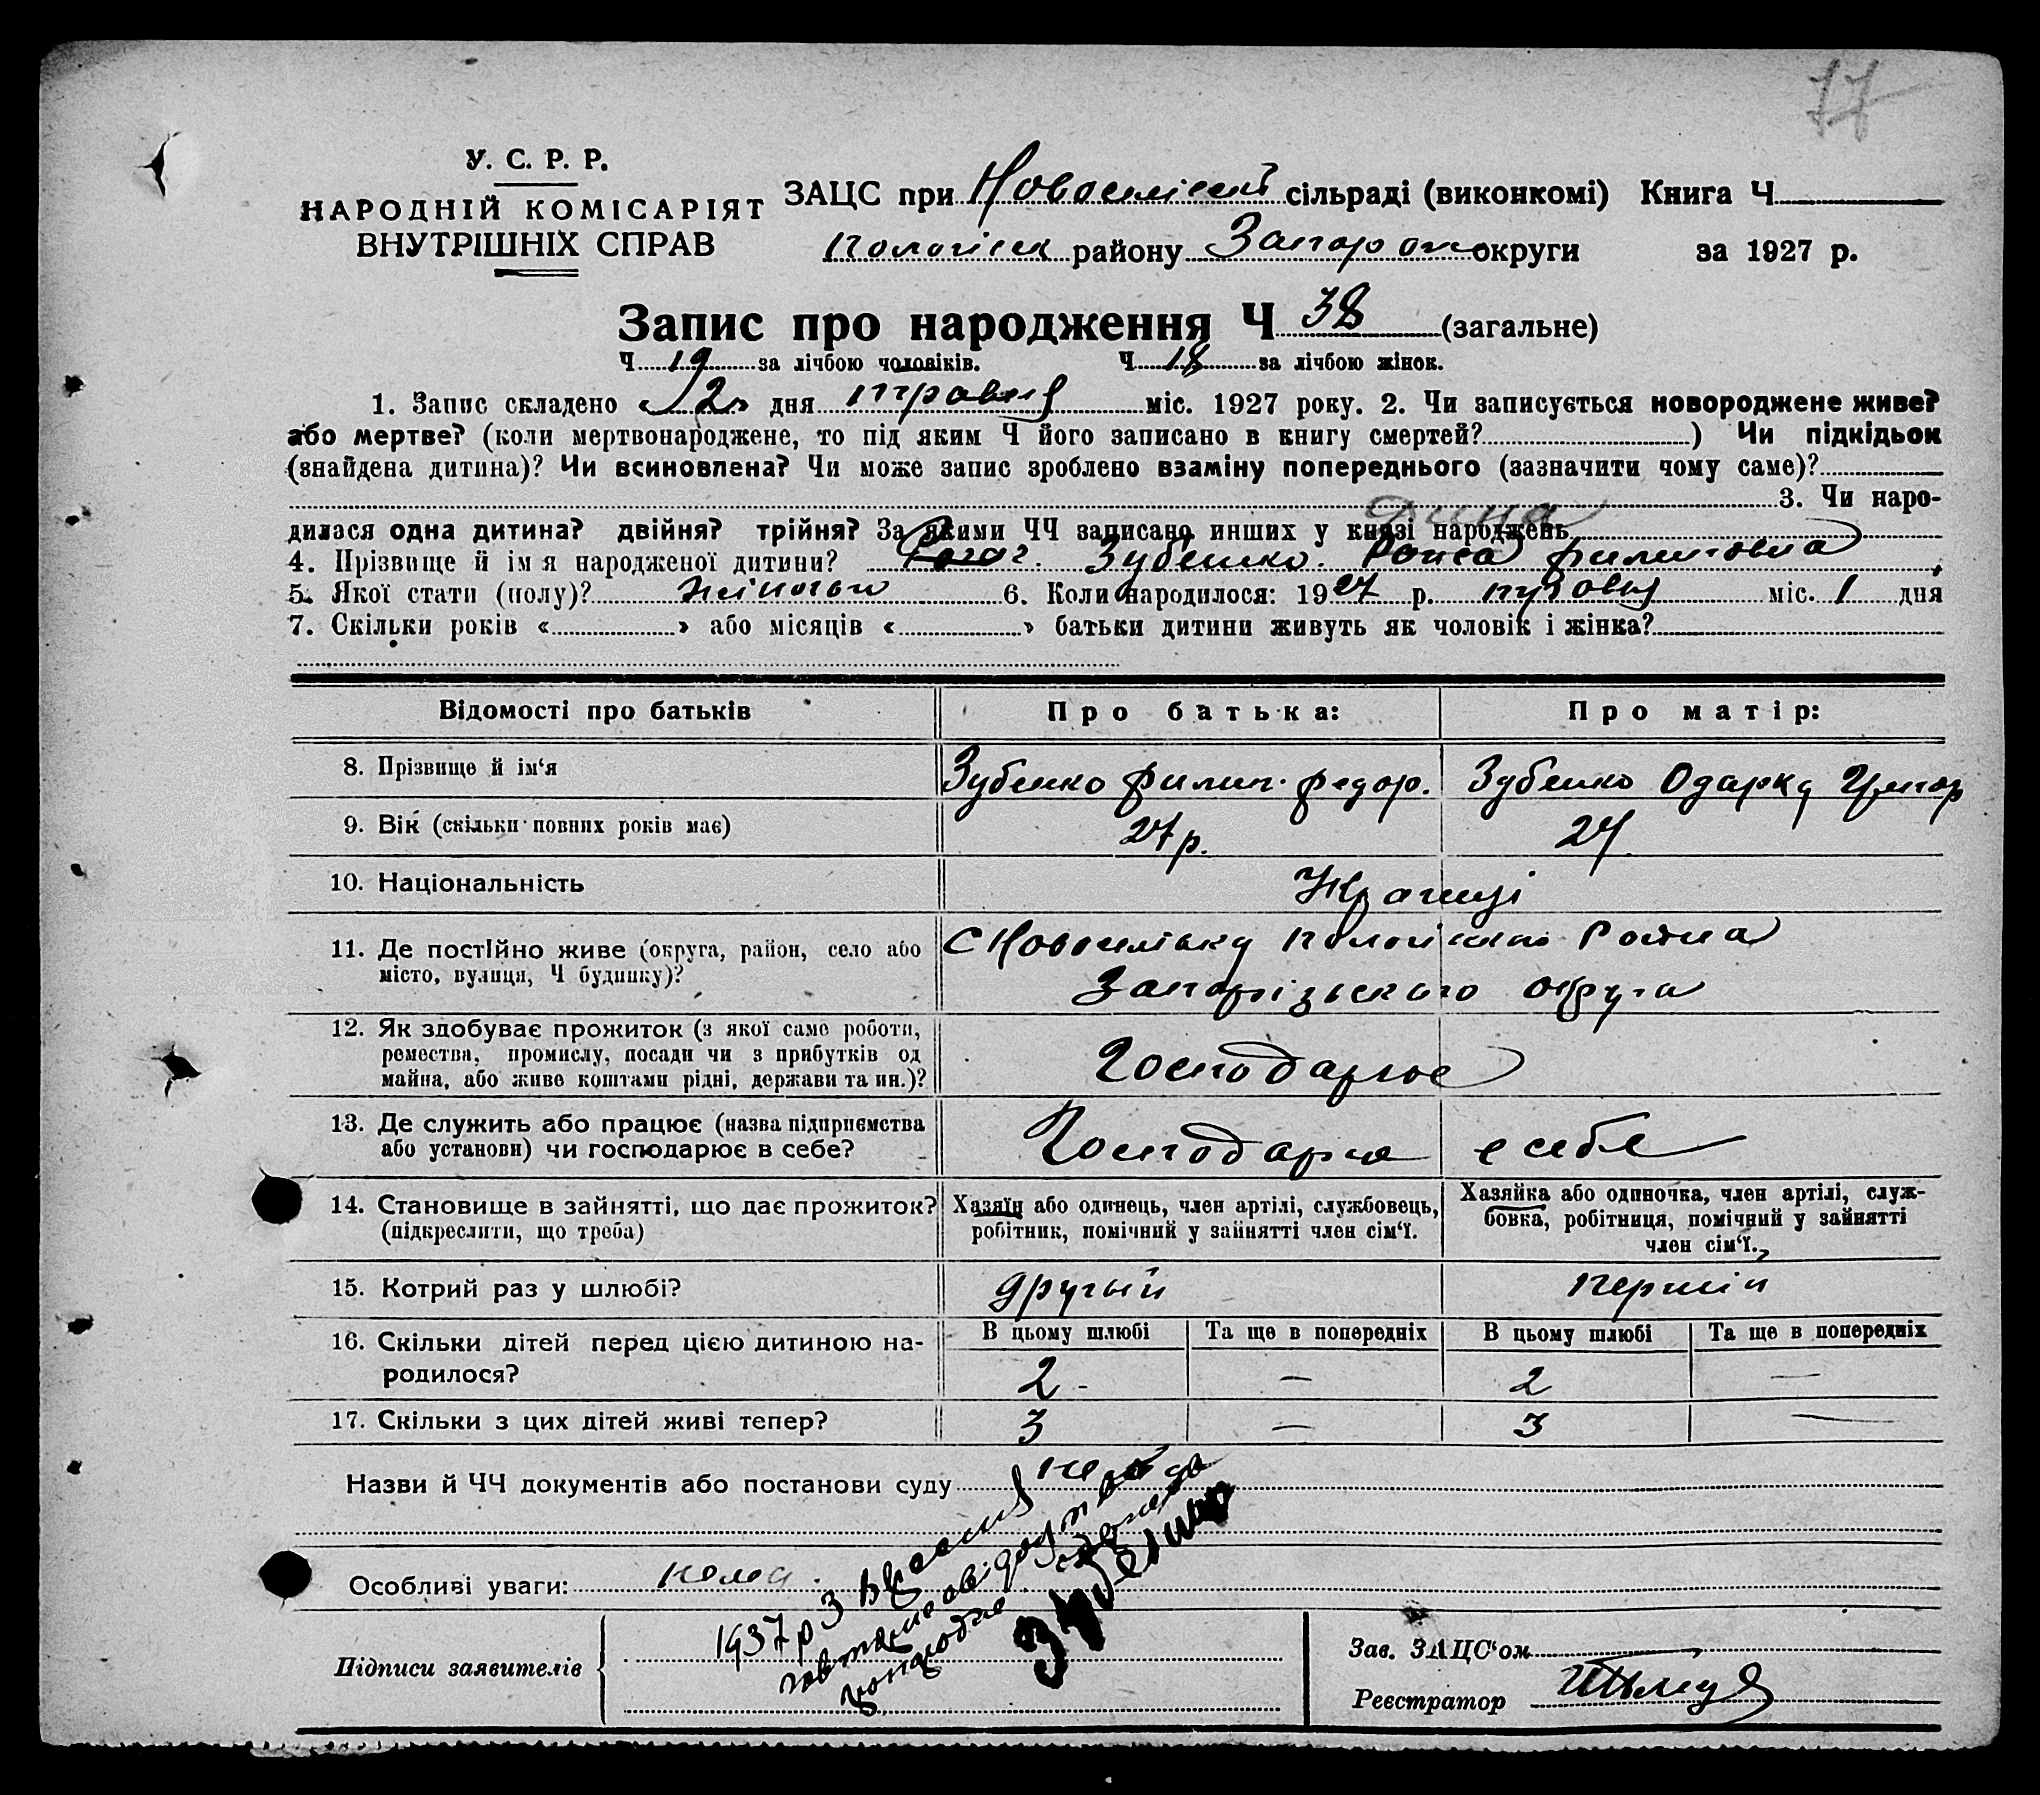 77
У. С. Р. Р.
НАРОДНІЙ КОМІСАРІЯТ
ВНУТРІШНІХ СПРАВ
ЗАЦС при сільраді (виконкомі) Книга Ч
району округи за 1927 р.
Запис про народження Ч 38 (загальне)
Ч 19 за лічбою чоловіків. Ч 18 за лічбою жінок.
1. Запис складено « 2 » дня травня міс. 1927 року. 2. Чи записується новороджене живе?
або мертве? (коли мертвонароджене, то під яким Ч його записано в книгу смертей? ) Чи підкідьок
(знайдена дитина)? Чи всиновлена? Чи може запис зроблено взаміну попереднього (зазначити чому саме)?
3. Чи наро-
дилася одна дитина? двійня? трійня? За якими ЧЧ записано инших у книзі народжень
4. Прізвище й ім я народженої дитини? Зубенко Раиса Филиповна
5. Якої стати (полу)? 6. Коли народилося: 1927 р. травня міс. 1 дня
7. Скільки років « » або місяців « » батьки дитини живуть як чоловік і жінка?
Відомості про батьків Про батька: Про матір:
8. Прізвище й ім‘я Зубенко Филип. Федор. Зубенко Одарка Григор
9. Вік (скільки повних років має) 27 р. 24
10. Національність
11. Де постійно живе (округа, район, село або
місто, вулиця, Ч будинку)?
Запорізького округа
12. Як здобуває прожиток (з якої саме роботи,
ремества, промислу, посади чи з прибутків од
майна, або живе коштами рідні, держави та ин.)?
Господарює
13. Де служить або працює (назва підприємства
або установи) чи господарює в себе?
Господарює в себе
14. Становище в зайнятті, що дає прожиток?
(підкреслити, що треба)
Хазяїн або одинець, член артілі, службовець,
робітник, помічний у зайнятті член сім‘ї.
Хазяйка або одиночка, член артілі, служ-
бовка, робітниця, помічний у зайнятті
член сім‘ї.
15. Котрий раз у шлюбі? другий перший
16. Скільки дітей перед цією дитиною на-
родилося?
В цьому шлюбі Та ще в попередніх В цьому шлюбі Та ще в попередніх
2 - — 2 —
17. Скільки з цих дітей живі тепер? 3 — 3 —
Назви й ЧЧ документів або постанови суду нема
Особливі уваги: нема.
1937 р 3
Підписи заявителів
Зав. ЗАЦС‘ом
Реєстратор